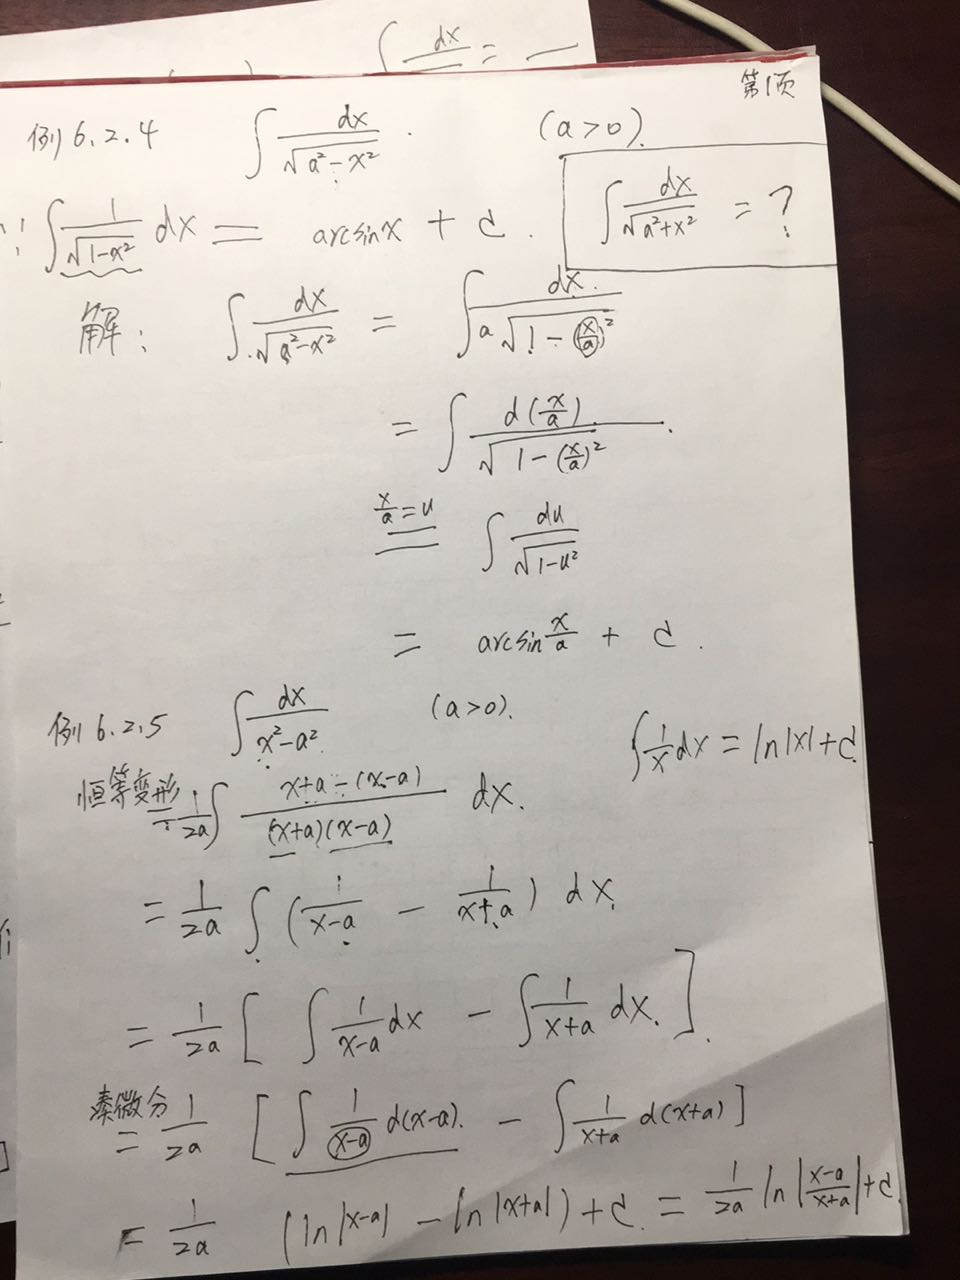 ∫ dx/ = —
第1页
例 6.2.4 ∫ dx/√(a²-x²) . (a>0).
∵ ∫ 1/√(1-x²) dx = arcsinx + C . ∫ dx/√(a²+x²) = ?
解: ∫ dx/√(a²-x²) = ∫ dx/(a√(1-(x/a)²))
= ∫ d(x/a)/√(1-(x/a)²) .
x/a=u
= ∫ du/√(1-u²)
= arcsin x/a + C .
例 6.2.5 ∫ dx/(x²-a²) (a>0).
∫ 1/x dx = ln|x|+C
恒等变形
= 1/2a ∫ (x+a-(x-a))/((x+a)(x-a)) dx.
= 1/2a ∫ (1/(x-a) - 1/(x+a)) dx.
= 1/2a [ ∫ 1/(x-a) dx - ∫ 1/(x+a) dx. ].
凑微分
= 1/2a [ ∫ 1/(x-a) d(x-a). - ∫ 1/(x+a) d(x+a) ]
= 1/2a (ln|x-a| - ln|x+a|) + C. = 1/2a ln|(x-a)/(x+a)|+C.